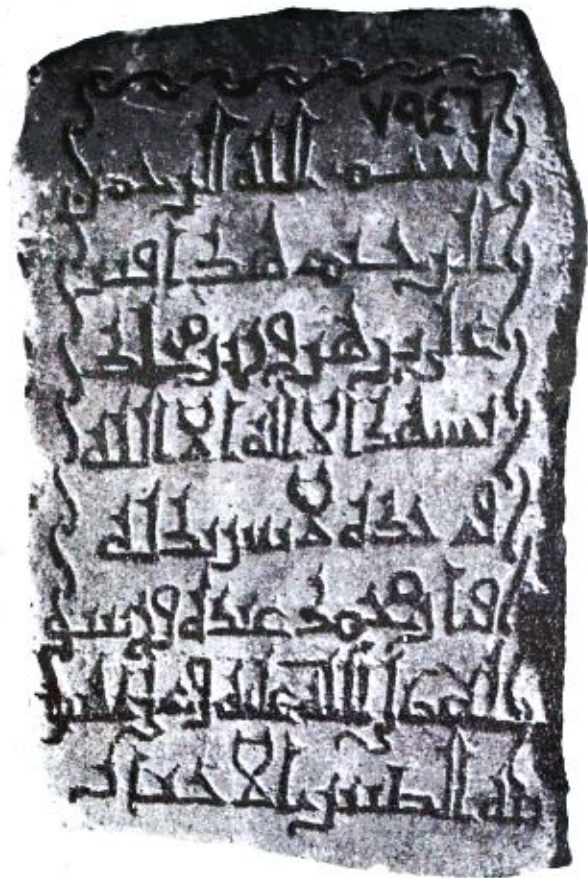 ٧٩٤٦
بسم الله الرحمن
الرحيم هذا قبر
علي بن هرون بن
يشهد الا اله الا الله
وحده لا شريك له
وان محمد عبده ورسو
له صلى الله عليه وعلى
الطيبين الاخيار